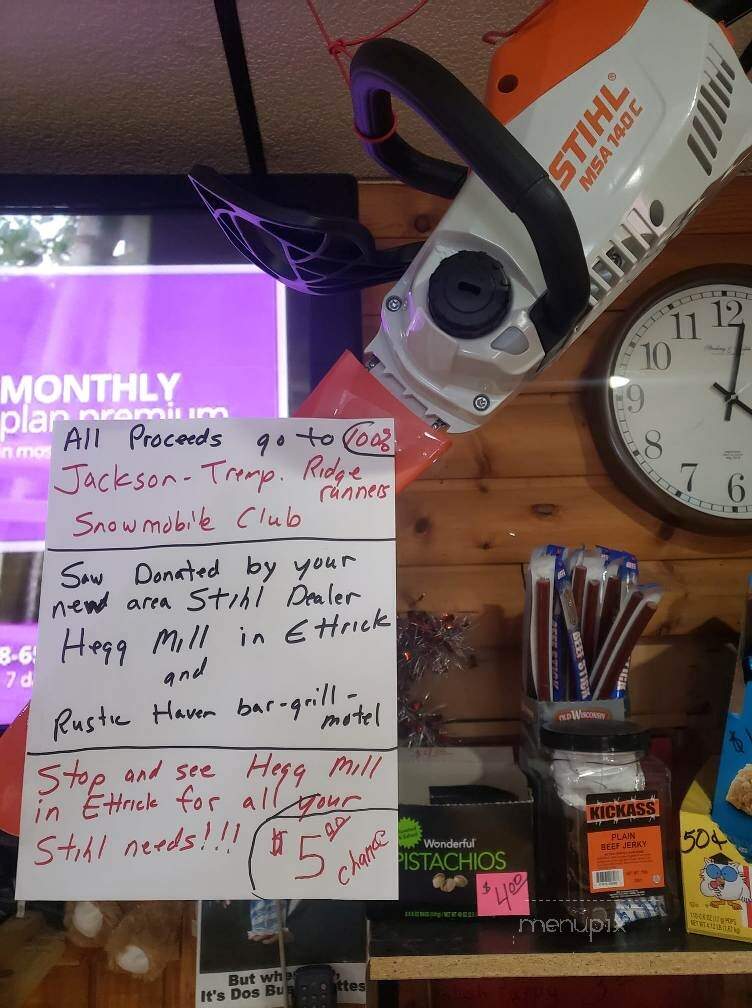 STIHL
MSA 140 C
MONTHLY
plan premium
All Proceeds go to 100%
Jackson - Tremp. Ridge
runners
Snowmobile Club
Saw Donated by your
new area Stihl Dealer
Hegg Mill in Ettrick
and
Rustic Haven bar-grill-
motel
Stop and see Hegg Mill
in Ettrick for all your
Stihl needs!!!
$5.00
chance
11 12
10
9
8
7 6
OLD WISCONSIN
BEEF STICK
KICKASS
PLAIN
BEEF JERKY
Wonderful
PISTACHIOS
$4.00
50¢
$
menupix
But whe
It's Dos Bu ttes
7 d